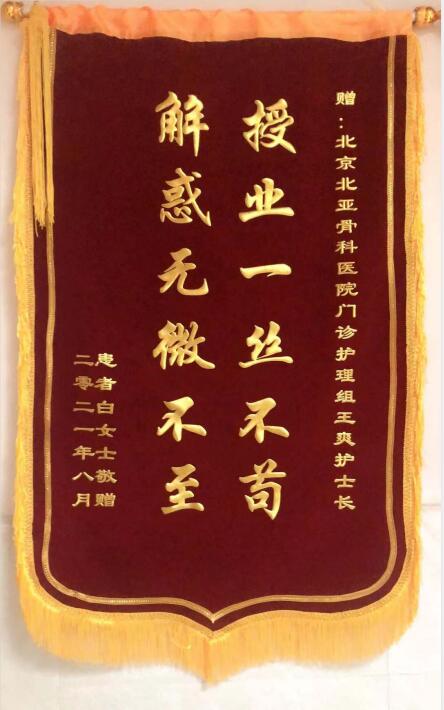 赠：北京北亚骨科医院门诊护理组王爽护士长
授业一丝不苟
解惑无微不至
患者白女士敬赠
二零二一年八月